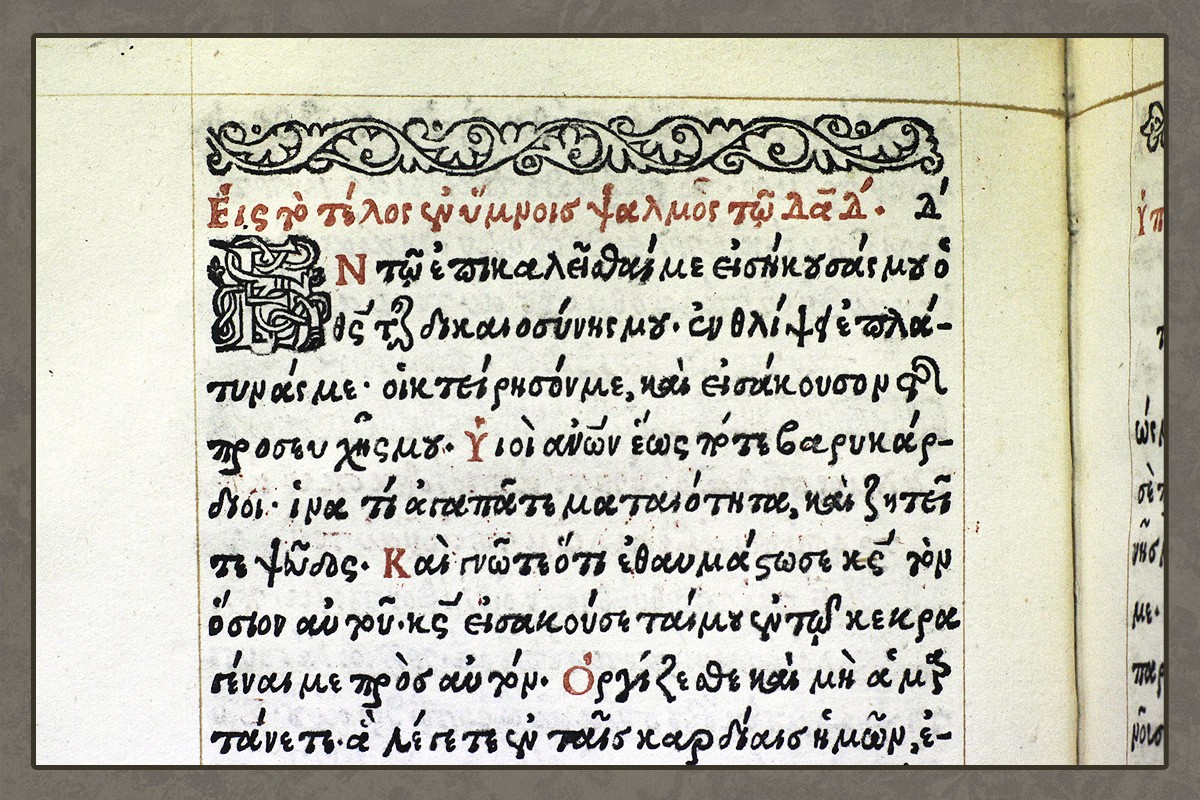 Εἰς τὸ τέλος ἐν ὕμνοισ ψαλμὸς τῷ Δᾱδ́. Δ́
ΕΝ τῷ ἐπικαλεῖσθαί με εἰσήκουσάς μου ὁ
θς̄ τῆς δικαιοσύνης μου· ἐν θλίψει ἐπλά-
τυνάς με· οἰκτείρησόν με, καὶ εἰσάκουσον τῆς
προσευχῆς μου. Ὑιοὶ ἀνῶν ἕως πότε βαρυκάρ-
διοι· ἵνα τί ἀγαπᾶτε ματαιότητα, καὶ ζητεῖ
τε ψεῦδος. Καὶ γνῶτε ὅτι ἐθαυμάστωσε κς̄ τὸν
ὅσιον αὐτοῦ. κς̄ εἰσακούσεταί μου ἐν τῷ κεκρα
γέναι με πρὸσ αὐτόν. Ὀργίζεσθε καὶ μὴ ἁμαρ
τάνετε. ἃ λέγετε ἐν ταῖσ καρδίαισ ἡμῶν, ἐ-